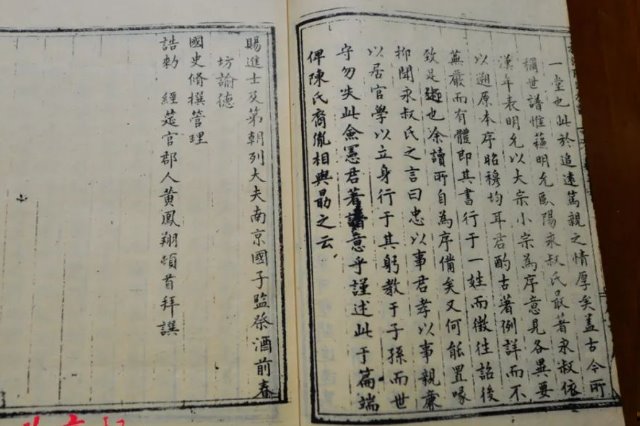 一堂也此於追遠篤親之情厚矣盖古今所
稱世譜惟蘓明允歐陽永叔氏最著永叔依
漢年表明允以大宗小宗為序意見各異要
以遡原本序昭穆均耳君酌古著例詳而不
蕪嚴而有體即其書行于一姓而徵往詔後
致是遊也余讀所自為序備矣又何能置喙
抑聞永叔氏之言曰忠以事君孝以事親廉
以居官學以立身行于其躬教于子孫而世
守勿失此僉憲君著譜意乎謹述此于篇端
俾陳氏裔胤相與勗之云
賜進士及第朝列大夫南京國子監祭酒前春
坊諭德
國史脩撰管理
誥勅 經筵官郡人黃鳳翔頓首拜譔